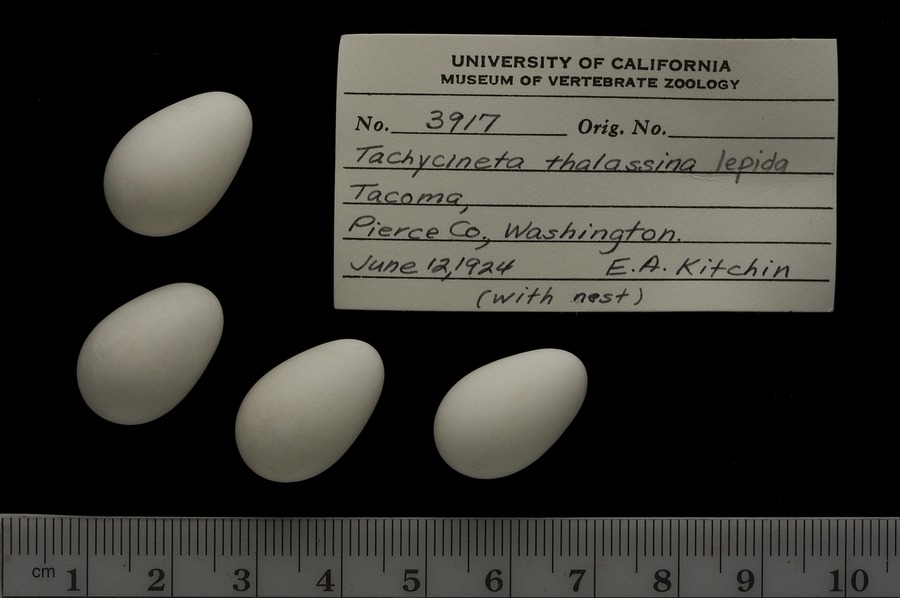 UNIVERSITY OF CALIFORNIA
MUSEUM OF VERTEBRATE ZOOLOGY
No. 3917 Orig. No.
Tachycineta thalassina lepida
Tacoma,
Pierce Co., Washington.
June 12, 1924 E.A. Kitchin
(with nest)
cm 1 2 3 4 5 6 7 8 9 10